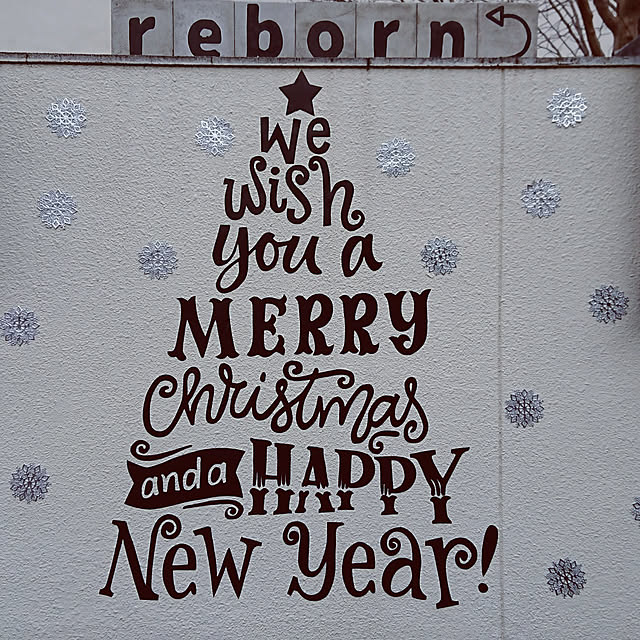 reborn
We
wish
you a
MERRY
Christmas
and a HAPPY
New Year!